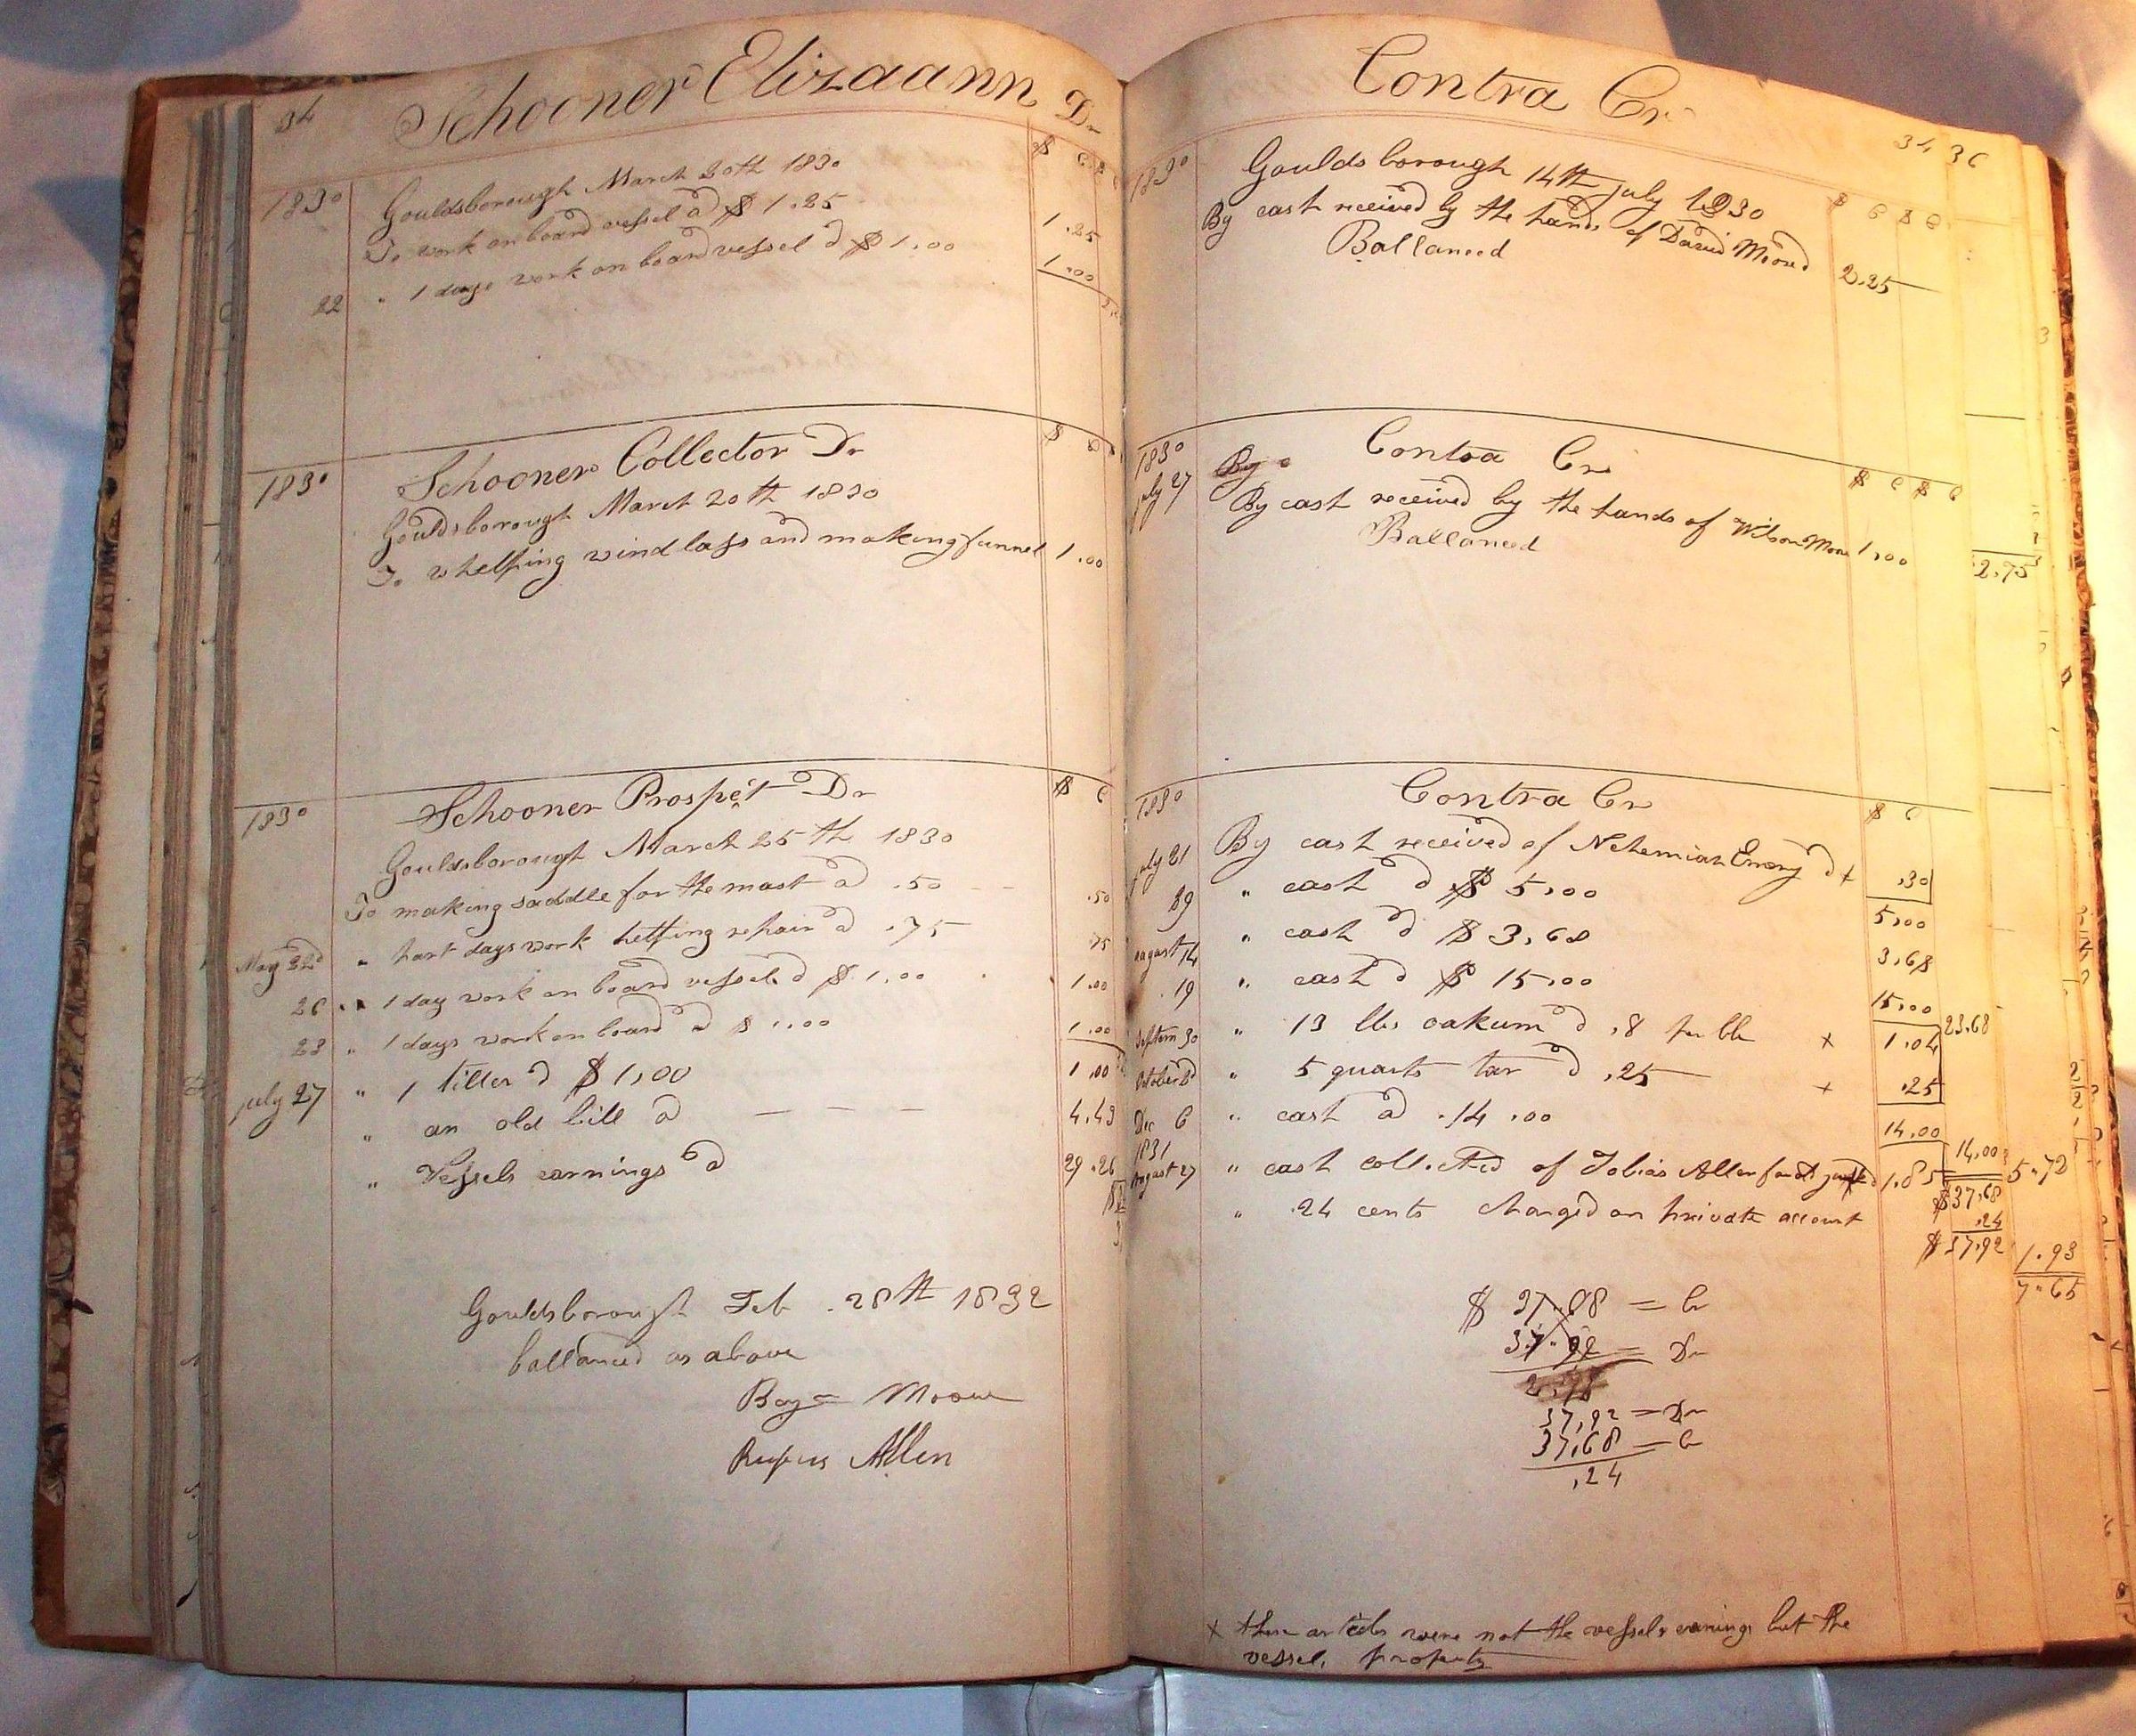 34 Schooner Elizaann Dr
$ c
1830 Gouldsborough March 20th 1830
To work on board vessel a $ 1.25 1.25
22 " 1 days work on board vessel a $ 1.00 1.00
1830 Schooner Collector Dr $ c
Gouldsborough March 20th 1830
To whelping windlass and making funnel 1.00
1830 Schooner Prospet Dr $ c
Gouldsborough March 25th 1830
To making saddle for the mast a .50 .50
May " part days work helping repair a .75 .75
26 " 1 day work on board vessel a $ 1.00 1.00
" 1 days work on board a $ 1.00 1.00
july 27 " 1 tiller a $ 1,00 1.00
" an old bill a 4.43
" Vessels earnings a 29.26
Gouldsborough Feb. 28th 1832
ballanced as above
Moore
Rufus Allen
Contra Cr
34 36
1830 Gouldsborough 14th july 1830 $ c $ c
By cash received by the hands of David Moore 2.25
Ballanced
1830 Contra Cr
july 27 By $ c $ c
By cash received by the hands of Wilson Moore 1,00
Ballanced
2.75
1830 Contra Cr $ c
july 21 By cash received of Nehemiah Emery a x .30
29 " cash a $ 5.00 5.00
august 14 " cash a $ 3.68 3.68
19 " cash a $ 15.00 15.00 23.68
Septem 30 " 13 lbs oakum a .8 per lb x 1.04
October " 5 quarts tar a .25 x .25
Dec 6 " cash a .14.00 14.00 14.00
1831
August 27 " cash collected of Tobias Allen 1.85 $37,68 5.72
" .24 cents charged on private account .24
$37,92 1.93
7.65
37,92 = Dr
37,68 = Cr
,24
x these articles were not the vessels earnings but the
vessels property